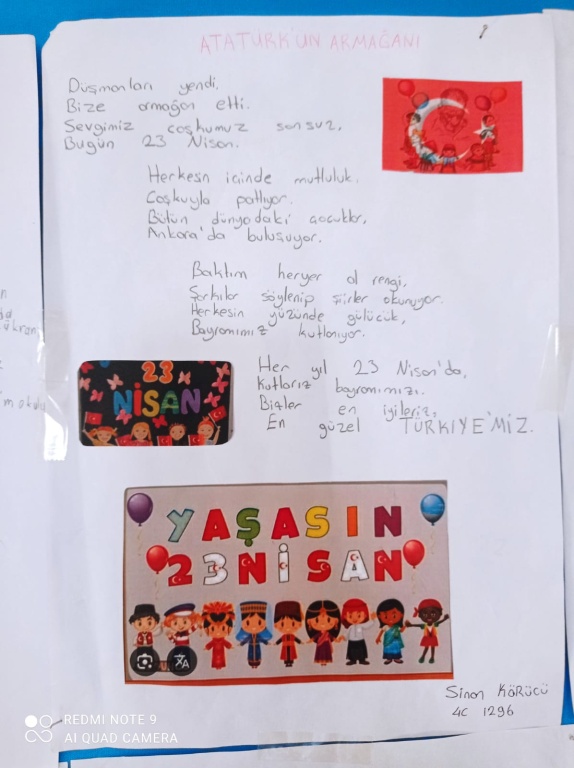 ATATÜRK'ÜN ARMAĞANI
Düşmanları yendi.
Bize armağan etti.
Sevgimiz coşkumuz sonsuz,
Bugün 23 Nisan.
Herkesin içinde mutluluk.
Coşkuyla patlıyor.
Bütün dünyadaki çocuklar,
Ankara'da buluşuyor.
Baktım heryer al rengi,
Şarkılar söylenip şiirler okunuyor.
Herkesin yüzünde gülücük,
Bayramımız kutlanıyor.
Her yıl 23 Nisan'da,
Kutlarız bayramımızı.
Bizler en iyileriz,
En güzel TÜRKİYE'MİZ.
23
NİSAN
YAŞASIN
23 NİSAN
Sinan KÖRÜCÜ
4C 1296
REDMI NOTE 9
AI QUAD CAMERA